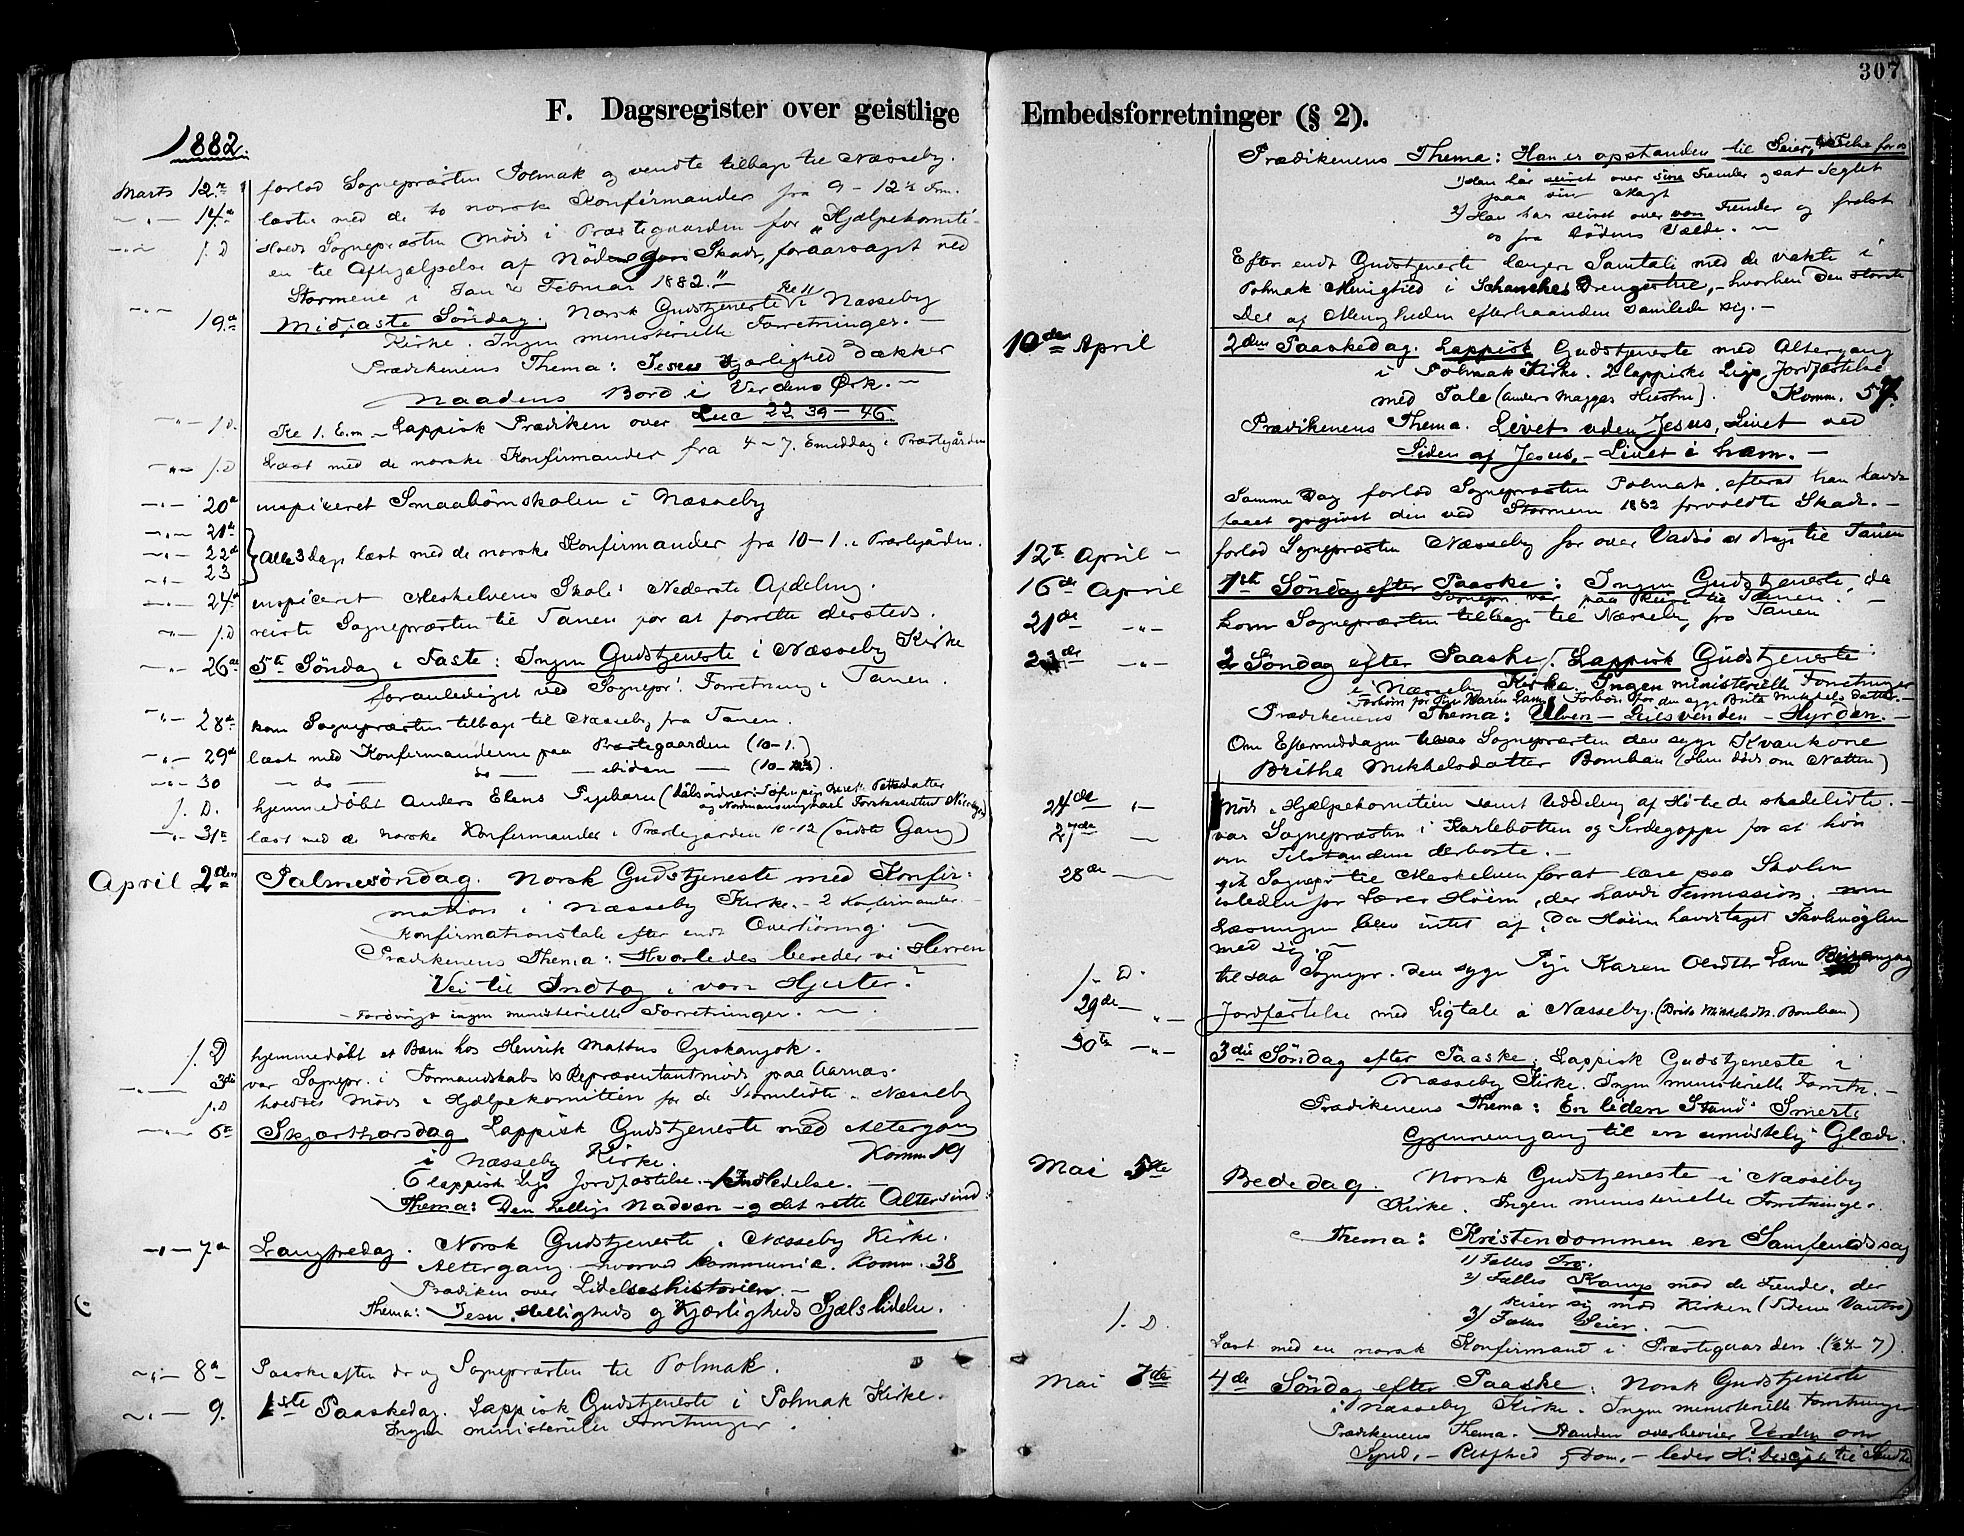 307
F. Dagsregister over geistlige Embedsforretninger (§ 2).
1882.
Marts 12te forlod Sognepræsten Polmak og vendte tilbage til Næsseby.
14de læste med de to norske Konfirmander fra 9 - 12½ Fm.
s. D holdt Sognepræsten Møde i Præstegaarden for "Hjælpekomité-
en til Afhjælpelse af Nøden Skade, foraarsaget ved
Stormene i Jan & Februar 1882."
19de Midfaste Søndag. Norsk Gudstjeneste i Næsseby
Kirke. Ingen ministerielle Forretninger. -
Prædikenens Thema: Jesus Kjærlighed dækker
Naadens Bord i Verdens Ørk. -
s. D. Kl 1. E.m - Lappisk Prædiken over Luc 22 39 - 46.
s. D Læst med de norske Konfirmander fra 4 - 7. Emiddag i Præstegården
20de inspiceret Smaabørnskolen i Næsseby
21de
22de } Alle 3 dage læst med de norske Konfirmander fra 10 - 1. i Præstegården.
23
24de inspiceret Meskelvens Skole: Nederste Afdeling.
s. D reiste Sognepræsten til Tanen for at forrette dersteds.
26de 5te Søndag i Faste: Ingen Gudstjeneste i Næsseby Kirke
foranlediget ved Sognepr. Forretning i Tanen.
28de kom Sognepræsten tilbage til Næsseby fra Tanen.
29de læst med Konfirmanderne paa Præstegaarden (10 - 1.)
30 - do - do - ibidem - (10 - 12½).
s. D. hjemmedøbt Anders Elens Pigebarn
31te læst med de norske Konfirmander i Præstegården 10-12 (sidste Gang)
April 2den Palmesøndag. Norsk Gudstjeneste med Konfir-
mation i Næsseby Kirke. - 2 Konfirmander -
Konfirmationstale efter endt Overhøring.
Prædikenens Thema: Hvorledes bereder vi Herren
Vei til Indtog i vore Hjerter?
- Forøvrigt ingen ministerielle Forretninger. -
s. D hjemmedøbt et Barn hos Henrik Mathus
3die var Sognepr. i Formandskabs & Repræsentantmøde paa Aarnæs.
s. D holdtes Møde i Hjælpekomitéen for de Stormlidte. Næsseby
6te Skjærthorsdag Lappisk Gudstjeneste med Altergang
i Næsseby Kirke. Komm 19
6 lappisk Ligs Jordfæstelse. 1 Indledelse. -
Thema: Den hellige Nadver - og det rette Altersind.
7de Langfredag. Norsk Gudstjeneste i Næsseby Kirke.
Altergang Komm. 38
Prædiken over Lidelseshistorien. -
Thema: Jesu Helligheds og Kjærligheds Sjælslidelse.
8de Paaskeaften drog Sognepræsten til Polmak.
9. 1ste Paaskedag. Lappisk Gudstjeneste i Polmak Kirke.
Ingen ministerielle Forretninger.
Prædikenens Thema: Han er opstanden til Seier,
1) Han har seiret over sine Fiender og sat Seglet
paa sin Magt
2) Han har seiret over vore Fiender og frelst
os fra Dødens Vælde. -
Efter endt Gudstjeneste længere Samtale med de vakte i
Polmak Menighed i Schanches Drengestue, - hvorhen den største
Del af Menigheden efterhaanden samlede sig. -
10de April 2den Paaskedag. Lappisk Gudstjeneste med Altergang
i Polmak Kirke. 2 lappiske Ligs Jordfæstelse
med Tale (Anders Magges Hustru). Komm. 57.
Prædikenens Thema. Livet uden Jesus, Livet ved
Siden af Jesus, - Livet i ham. -
Samme Dag forlod Sognepræsten Polmak, efterat han havde
faaet opgivet den ved Stormene 1882 forvoldte Skade. -
12te April - forlod Sognepræsten Næsseby for over Vadsø at drage til Tanen
16de April 1ste Søndag efter Paaske: Ingen Gudstjeneste, da
Sognepr. var paa Reise til Tanen. -
21de kom Sognepræsten tilbage til Næsseby fra Tanen
23de 2 Søndag efter Paaske. Lappisk Gudstjeneste
i Næsseby Kirke. Ingen ministerielle Forretninger
Prædikenens Thema: Ulven - Leiesvenden - Hyrden. -
Om Eftermiddagen tilsaa Sognepræsten den syge Kvænkone
Britha Mikkelsdatter Bomban (Hun døde om Natten)
24de Møde i Hjælpekomitéen samt Uddeling af Hø til de skadelidte. -
27de var Sognepræsten i Karlebotten og Sirdegoppe for at høre
om Tilstandene derborte. -
28de gik Sognepr til Meskelven for at læse paa Skolen
isteden for Lærer Høiem, der havde Permission, men
Læsningen blev intet af, da Høiem havde taget Skolenøglen
med sig. -
s. D. tilsaa Sognepr. den syge Pige Karen
29de Jordfæstelse med Ligtale i Næsseby. (Brita Mikkelsdtr. Bomban)
30te 3die Søndag efter Paaske. Lappisk Gudstjeneste i
Næsseby Kirke. Ingen ministerielle Forretn. -
Prædikenens Thema: En liden Stund Smerte
Gjennemgang til en umistelig Glæde.
Mai 5te Bededag. Norsk Gudstjeneste i Næsseby
Kirke. Ingen ministerielle Forretninger.
Thema: Kristendommen en Samfundssag
1) Fælles Tro.
2) Fælles Kamp mod de Fiender, der
reiser sig mod Kirken (Tidens Vantro)
3) Fælles Seier. -
s. D. Læst med en norsk Konfirmand i Præstegaarden.
Mai 7de 4de Søndag efter Paaske: Norsk Gudstjeneste
i Næsseby Kirke. Ingen ministerielle Forretninger
Prædikenens Thema. Aanden overbeviser Verden om
Synd, - Retfhed og Dom, - leder